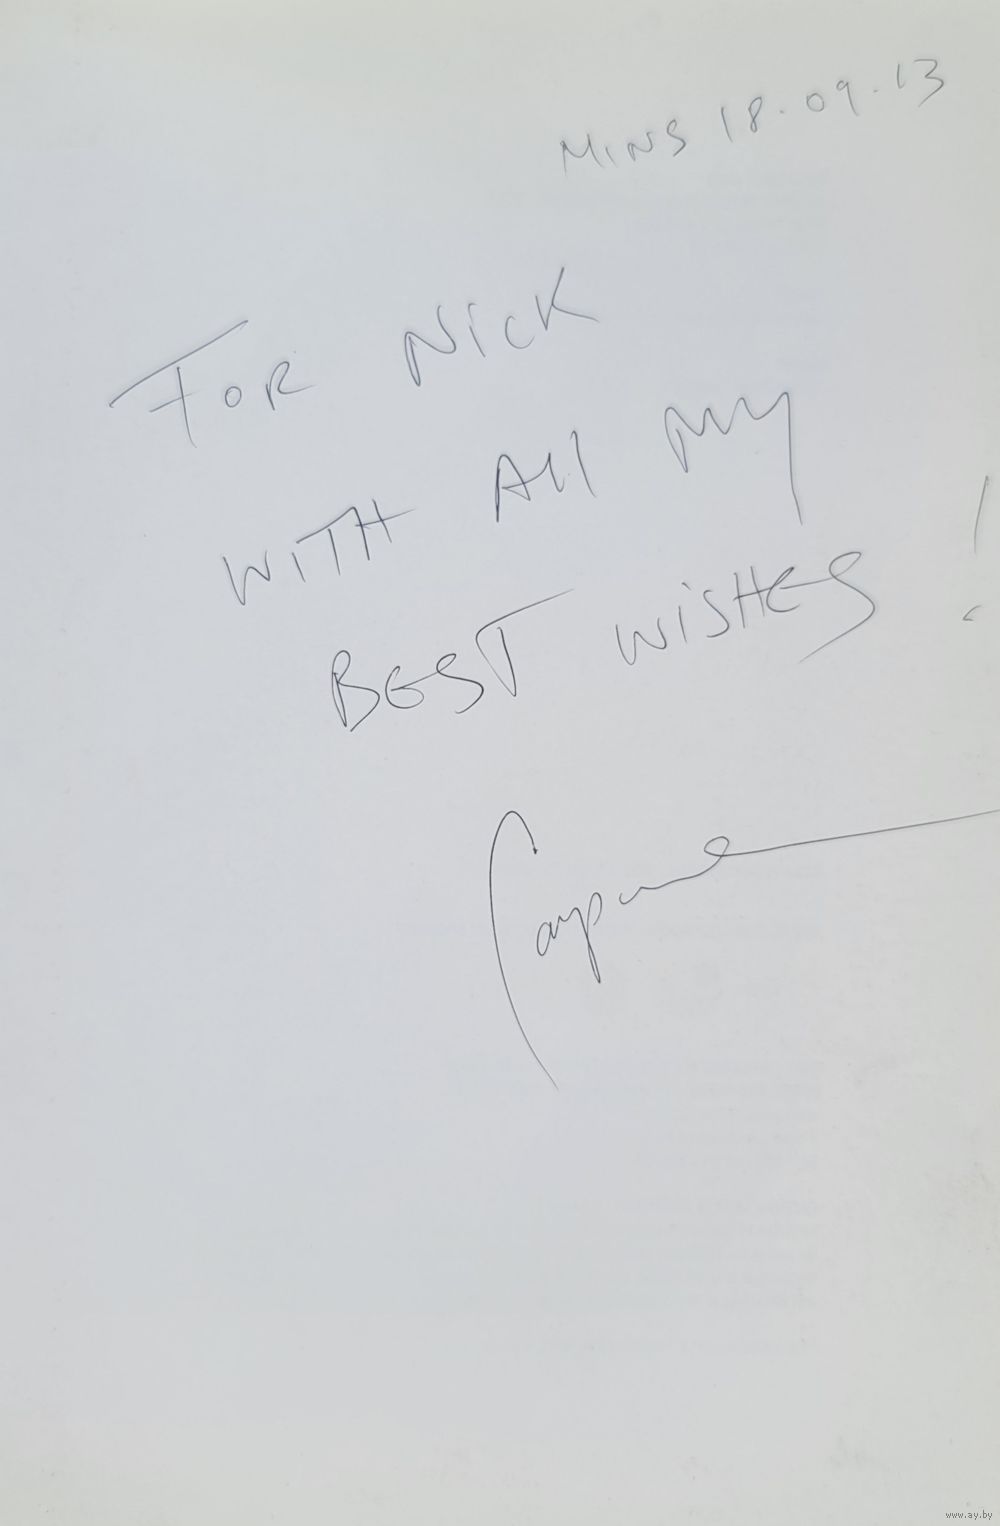 MINS 18.09.13
FOR NICK
WITH All MY
BEST WISHES !
www.ay.by